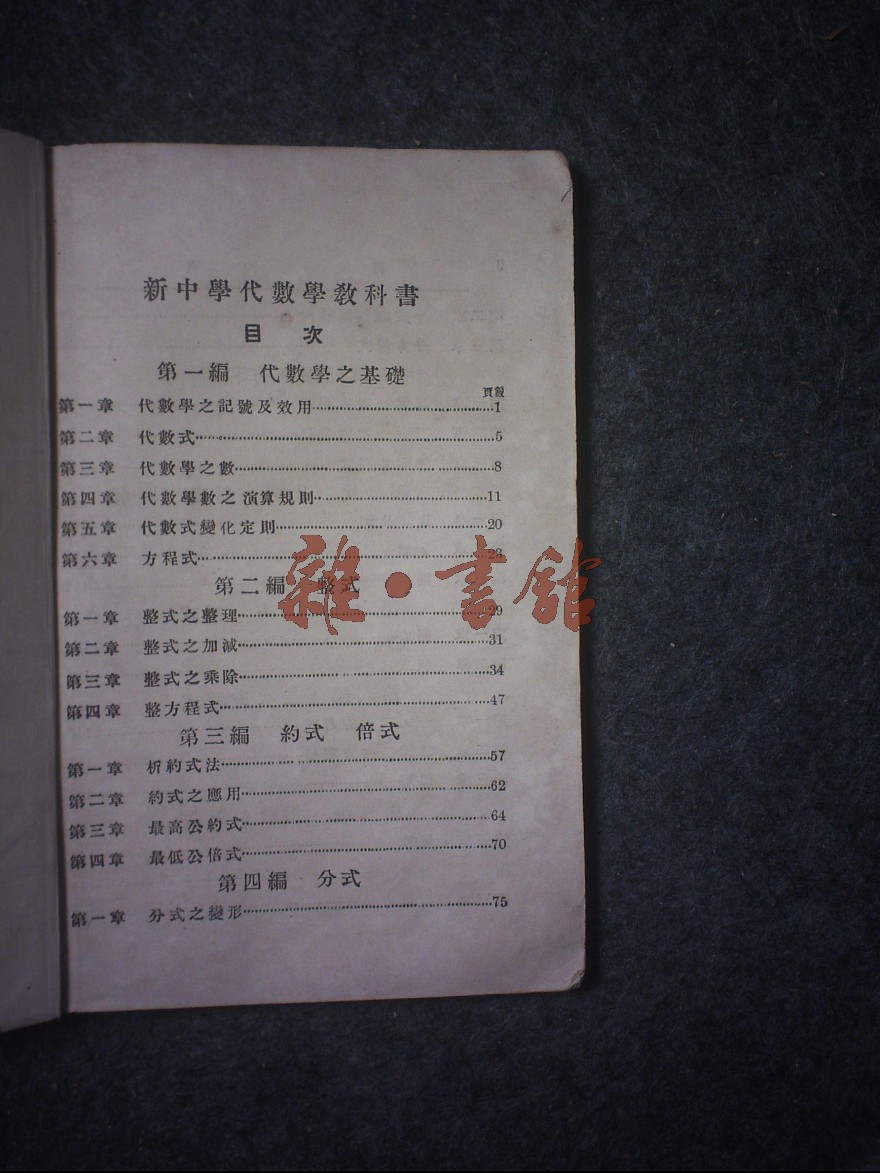 新中學代數學教科書
目 次
第一編 代數學之基礎
頁數
第一章 代數學之記號及效用……1
第二章 代數式……5
第三章 代數學之數……8
第四章 代數學數之演算規則……11
第五章 代數式變化定則……20
第六章 方程式……23
第二編 整式
雜·書館
第一章 整式之整理……29
第二章 整式之加減……31
第三章 整式之乘除……34
第四章 整方程式……47
第三編 約式 倍式
第一章 析約式法……57
第二章 約式之應用……62
第三章 最高公約式……64
第四章 最低公倍式……70
第四編 分式
第一章 分式之變形……75